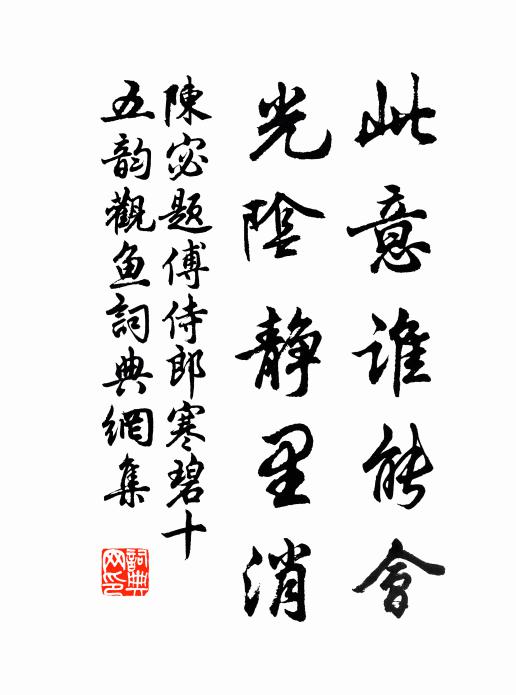 此意谁能會
光陰靜里消
陳宓題傅侍郎寒碧十
五韵觀鱼詞典網集
詞典网印